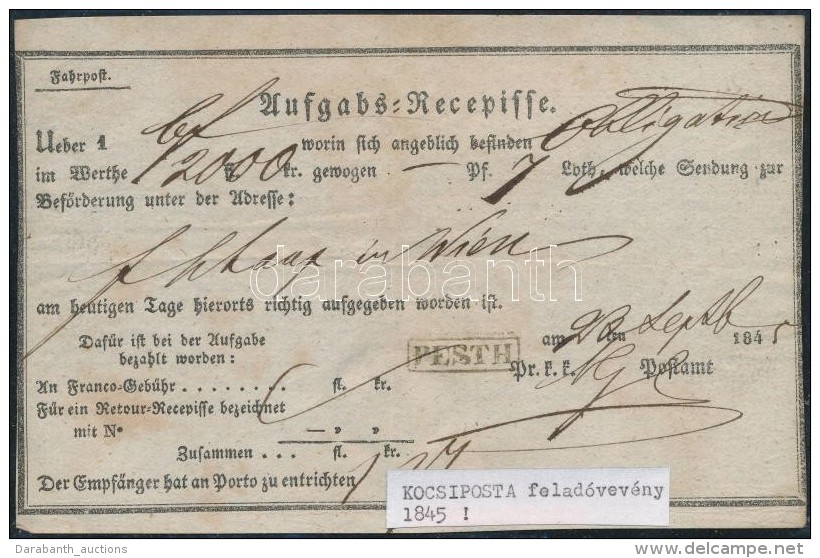 Fahrpost.
Aufgabs-Recepisse.
Ueber 1 bf worin sich angeblich befinden Obligation
im Werthe 2000 kr. gewogen — Pf. 7 Loth, welche Sendung zur
Beförderung unter der Adresse:
in Wien
darabanth
am heutigen Tage hierorts richtig aufgegeben worden ist.
Dafür ist bei der Aufgabe
bezahlt worden:
PESTH
am 23 ten Septb 1845
Pr. k. k. Postamt
An Franco-Gebühr . . . . . . . . fl. kr.
Für ein Retour-Recepisse bezeichnet
mit N° — „ „
Zusammen . . . fl. kr.
Der Empfänger hat an Porto zu entrichten
KOCSIPOSTA feladóvevény
1845 !
Darabanth_auctions
delcampe.net